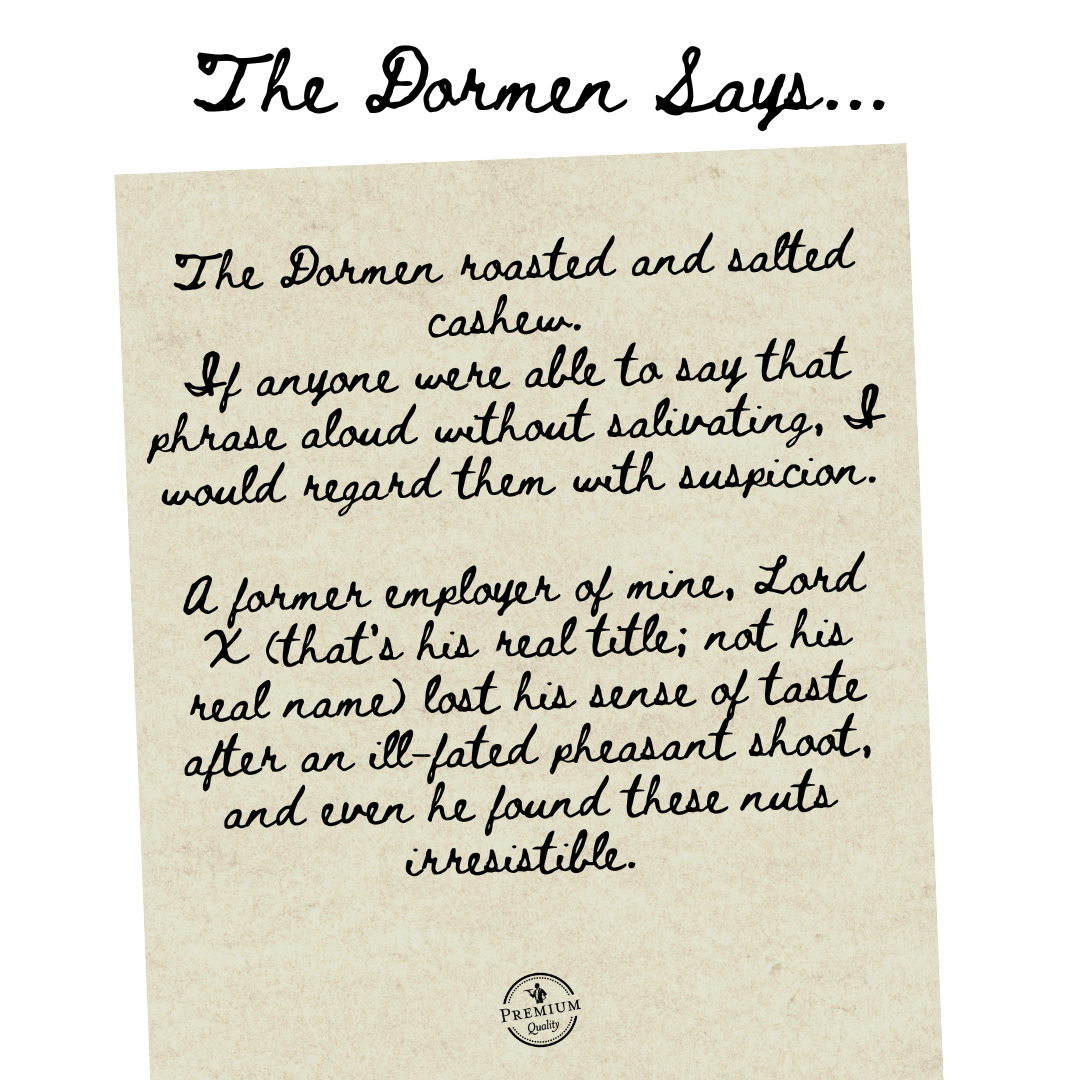 The Dormen Says...
The Dormen roasted and salted
cashew.
If anyone were able to say that
phrase aloud without salivating, I
would regard them with suspicion.
A former employer of mine, Lord
X (that's his real title; not his
real name) lost his sense of taste
after an ill-fated pheasant shoot,
and even he found these nuts
irresistible.
PREMIUM
Quality